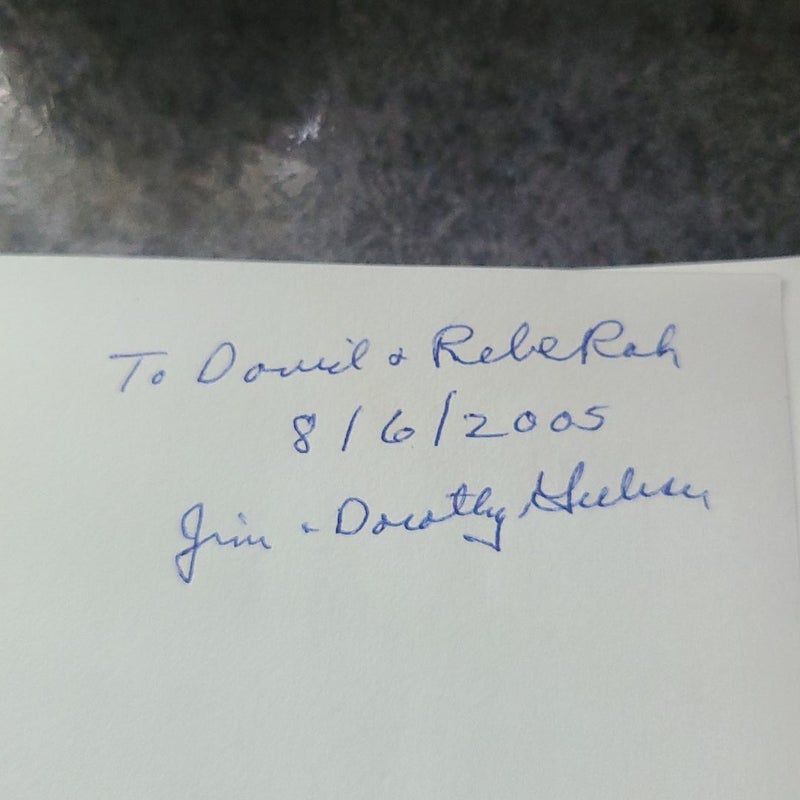 To David & Rebekah
8/6/2005
Jim & Dorothy